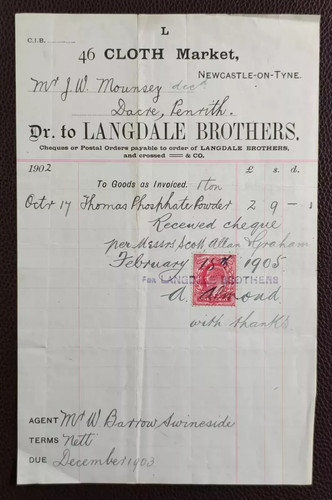 L
C.I.B.
46 CLOTH Market,
NEWCASTLE-ON-TYNE.
Mr J. W. Mounsey decd
Dacre, Penrith.
Dr. to LANGDALE BROTHERS,
Cheques or Postal Orders payable to order of LANGDALE BROTHERS,
and crossed & CO.
1902 £ s. d.
To Goods as Invoiced. 1 ton
Octr 17 Thomas Phosphate Powder 2 9 –
Received cheque
per Messrs Scott, Allan & Graham
February 15th 1905
FOR LANGDALE BROTHERS
A. Almond
with thanks
AGENT Mr W. Barrow Swineside
TERMS Nett
DUE December 1903